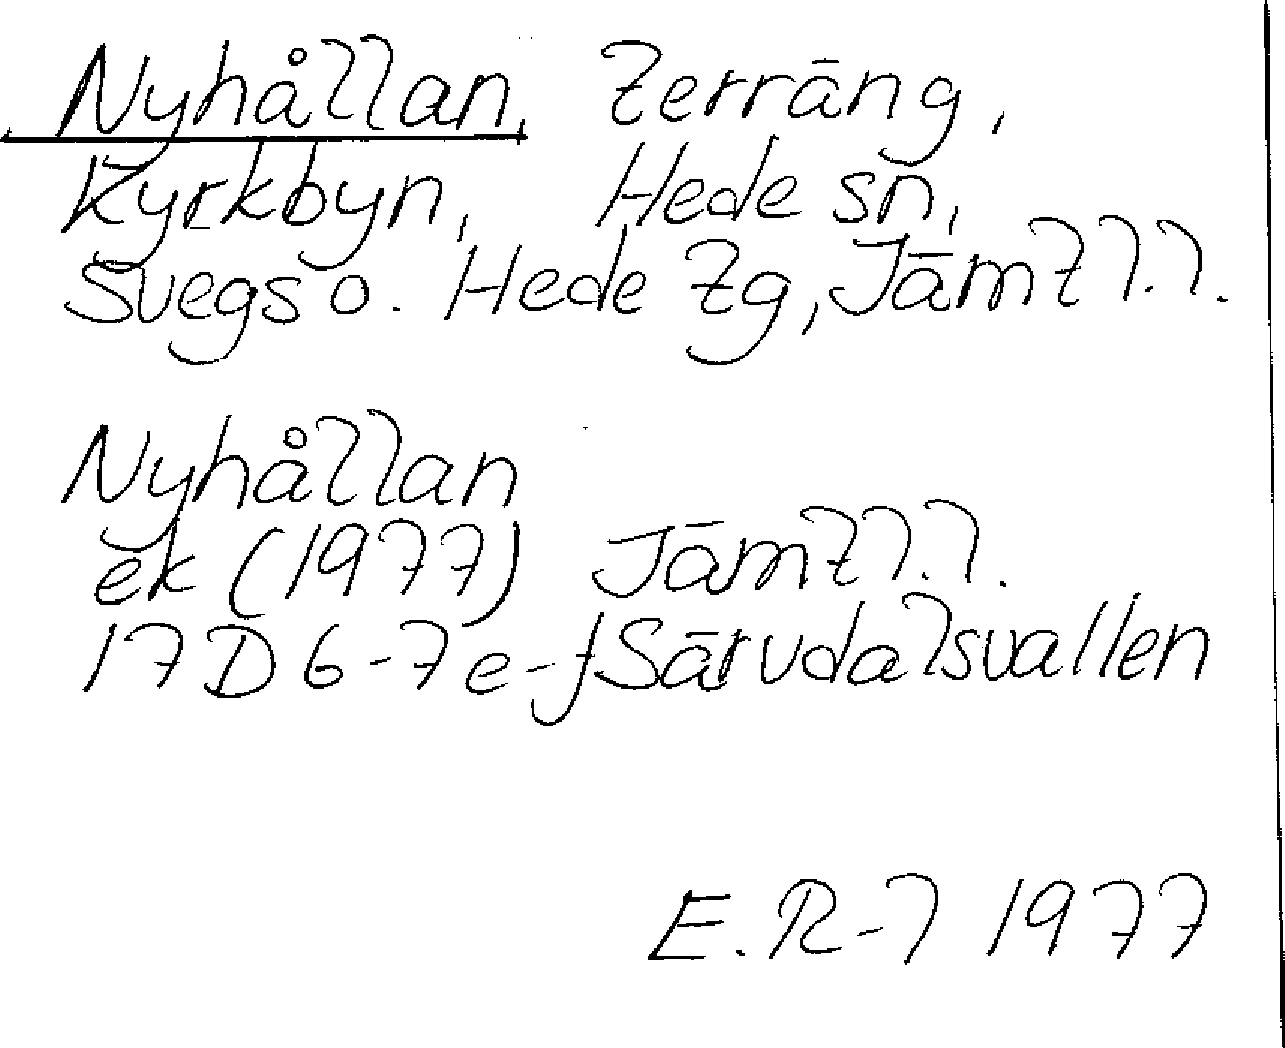 Nyhållan, Terräng,
Kyrkbyn, Hede sn,
Svegs o. Hede tg, Jämtl.l.
Nyhållan
ek (1977) Jämtl.l.
17D 6-7e-f Särvdalsvallen
E. R-l 1977